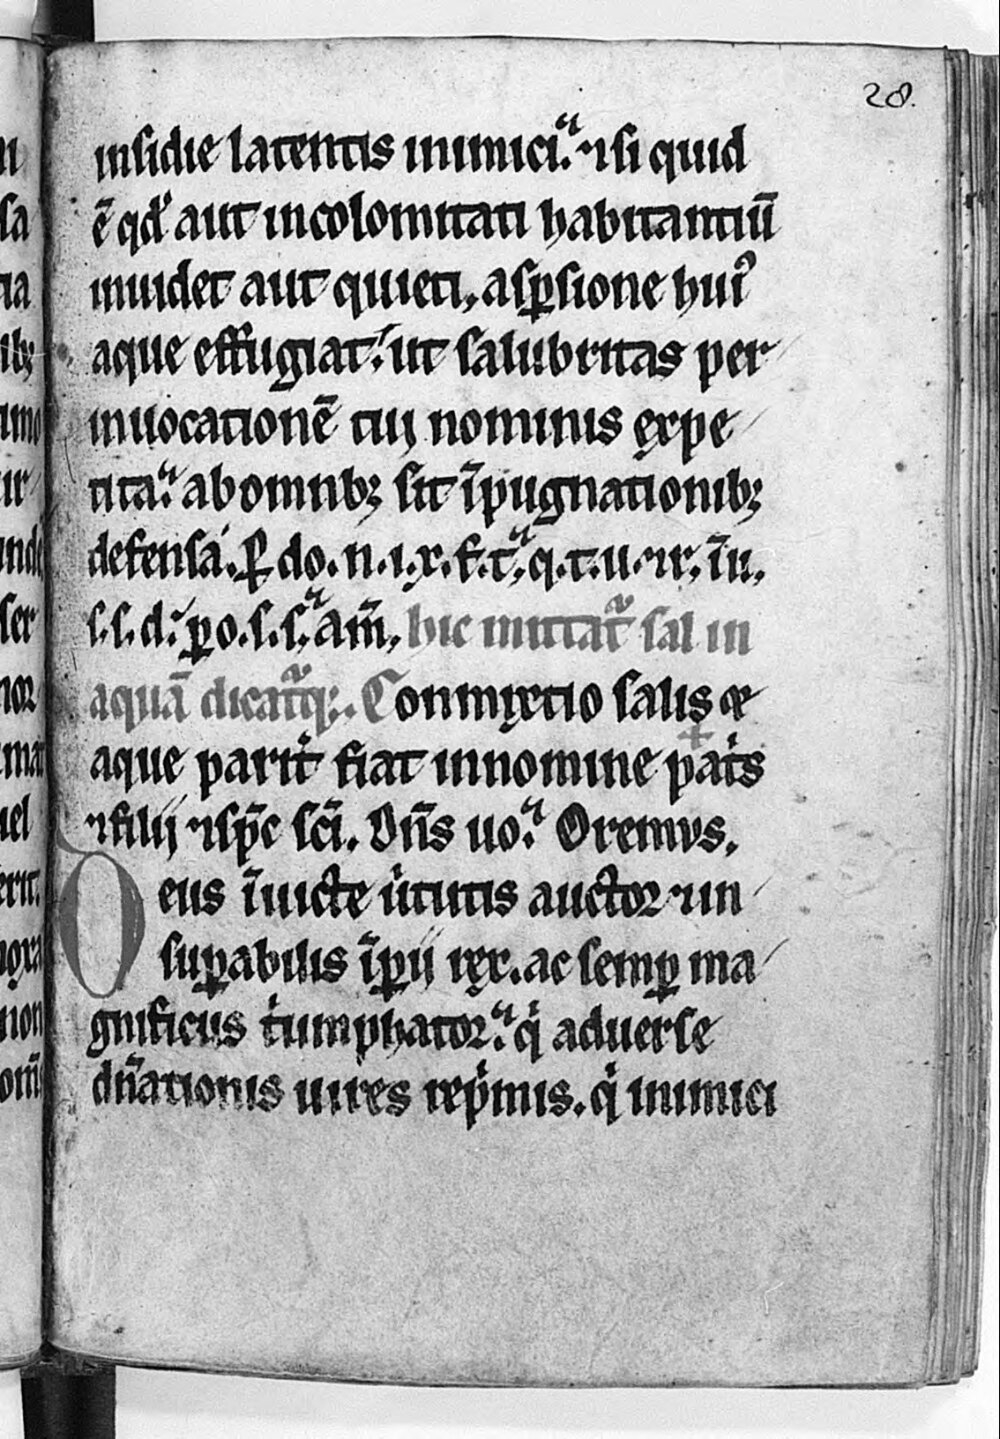 28.
insidie latentis inimici. ⁊ si quid
ē qd' aut incolomitati habitantiū
inuidet aut quieti, asꝑsione huiꝰ
aque effugiat. ut salubritas per
inuocationē tui nominis expe
tita. ab omnibꝫ sit īpugnationibꝫ
defensa. P̱ do. n. i. x. f. t. q. t. u. ⁊ r. ī u.
s. s. d. ꝑ o. s. s. am̄. hic mittat᷑ sal in
aquā dicat᷑qꝫ. Conmixtio salis &
aque parit̓ fiat in nomine pat̓s
⁊ filij ⁊ sp̄c sc̄i. Dn̄s uo. Oremus.
Deus īuicte u̓tutis auctor ⁊ in
suꝑabilis īꝑii rex. ac semꝑ ma
gnificus t̓umphator. q̓ aduerse
dn̄ationis uires rep̓mis. q̓ inimici